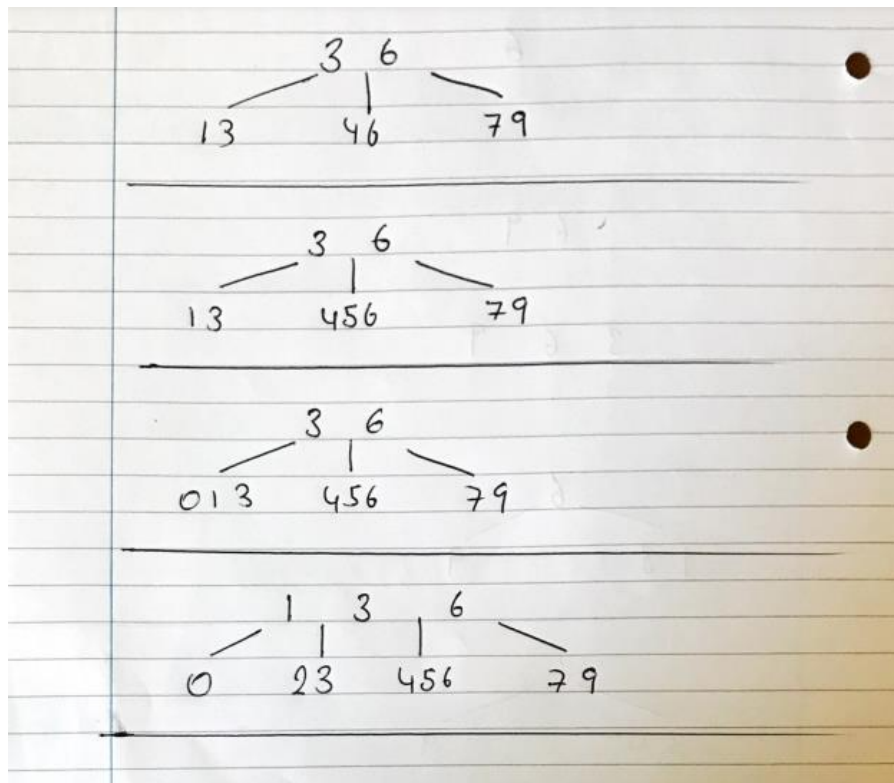 3 6
13 46 79
3 6
13 456 79
3 6
013 456 79
1 3 6
0 23 456 79